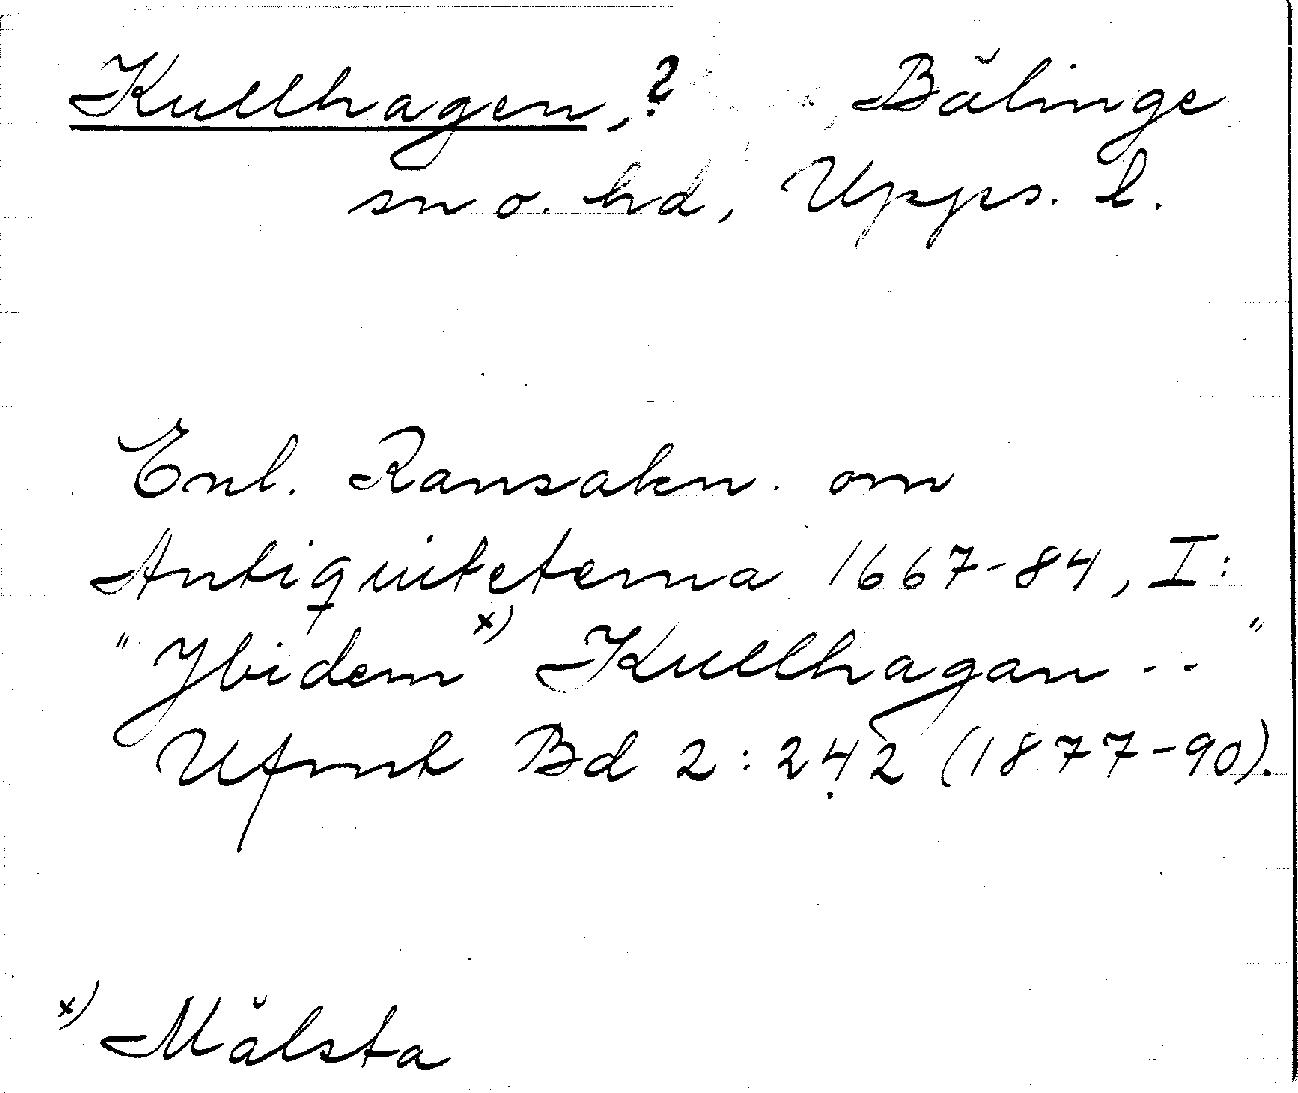 Kullhagen, ? Bälinge
sn o. hd, Upps. l.
Enl. Ransakn. om
Antiquiteterna 1667-84, I:
"Ybidem x) Kullhagan -- "
Ufmt Bd 2:242 (1877-90).
x) Målsta